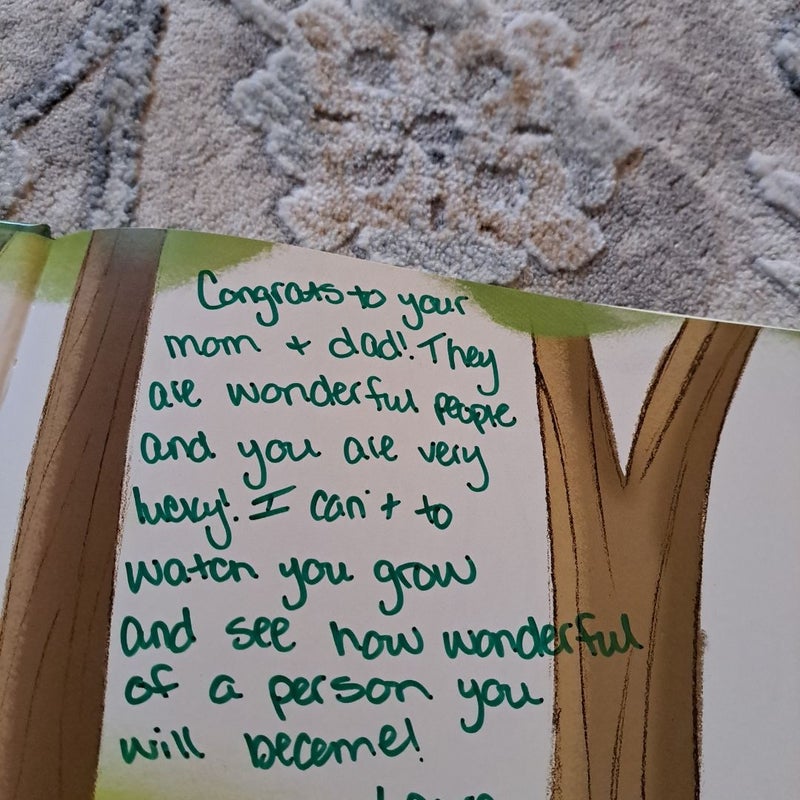 Congrats to your
mom + dad! They
are wonderful people
and you are very
lucky! I can't to
watch you grow
and see how wonderful
of a person you
will become!